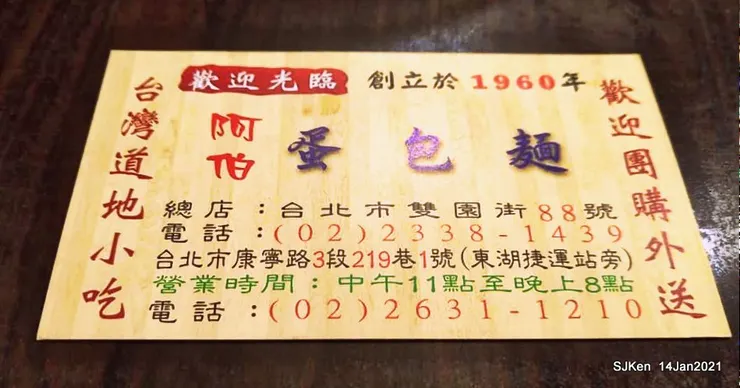 歡迎光臨 創立於1960年
台灣道地小吃
阿伯 蛋包麵
歡迎團購外送
總店：台北市雙園街88號
電話：(02)2338-1439
台北市康寧路3段219巷1號(東湖捷運站旁)
營業時間：中午11點至晚上8點
電話：(02)2631-1210
SJKen 14Jan2021